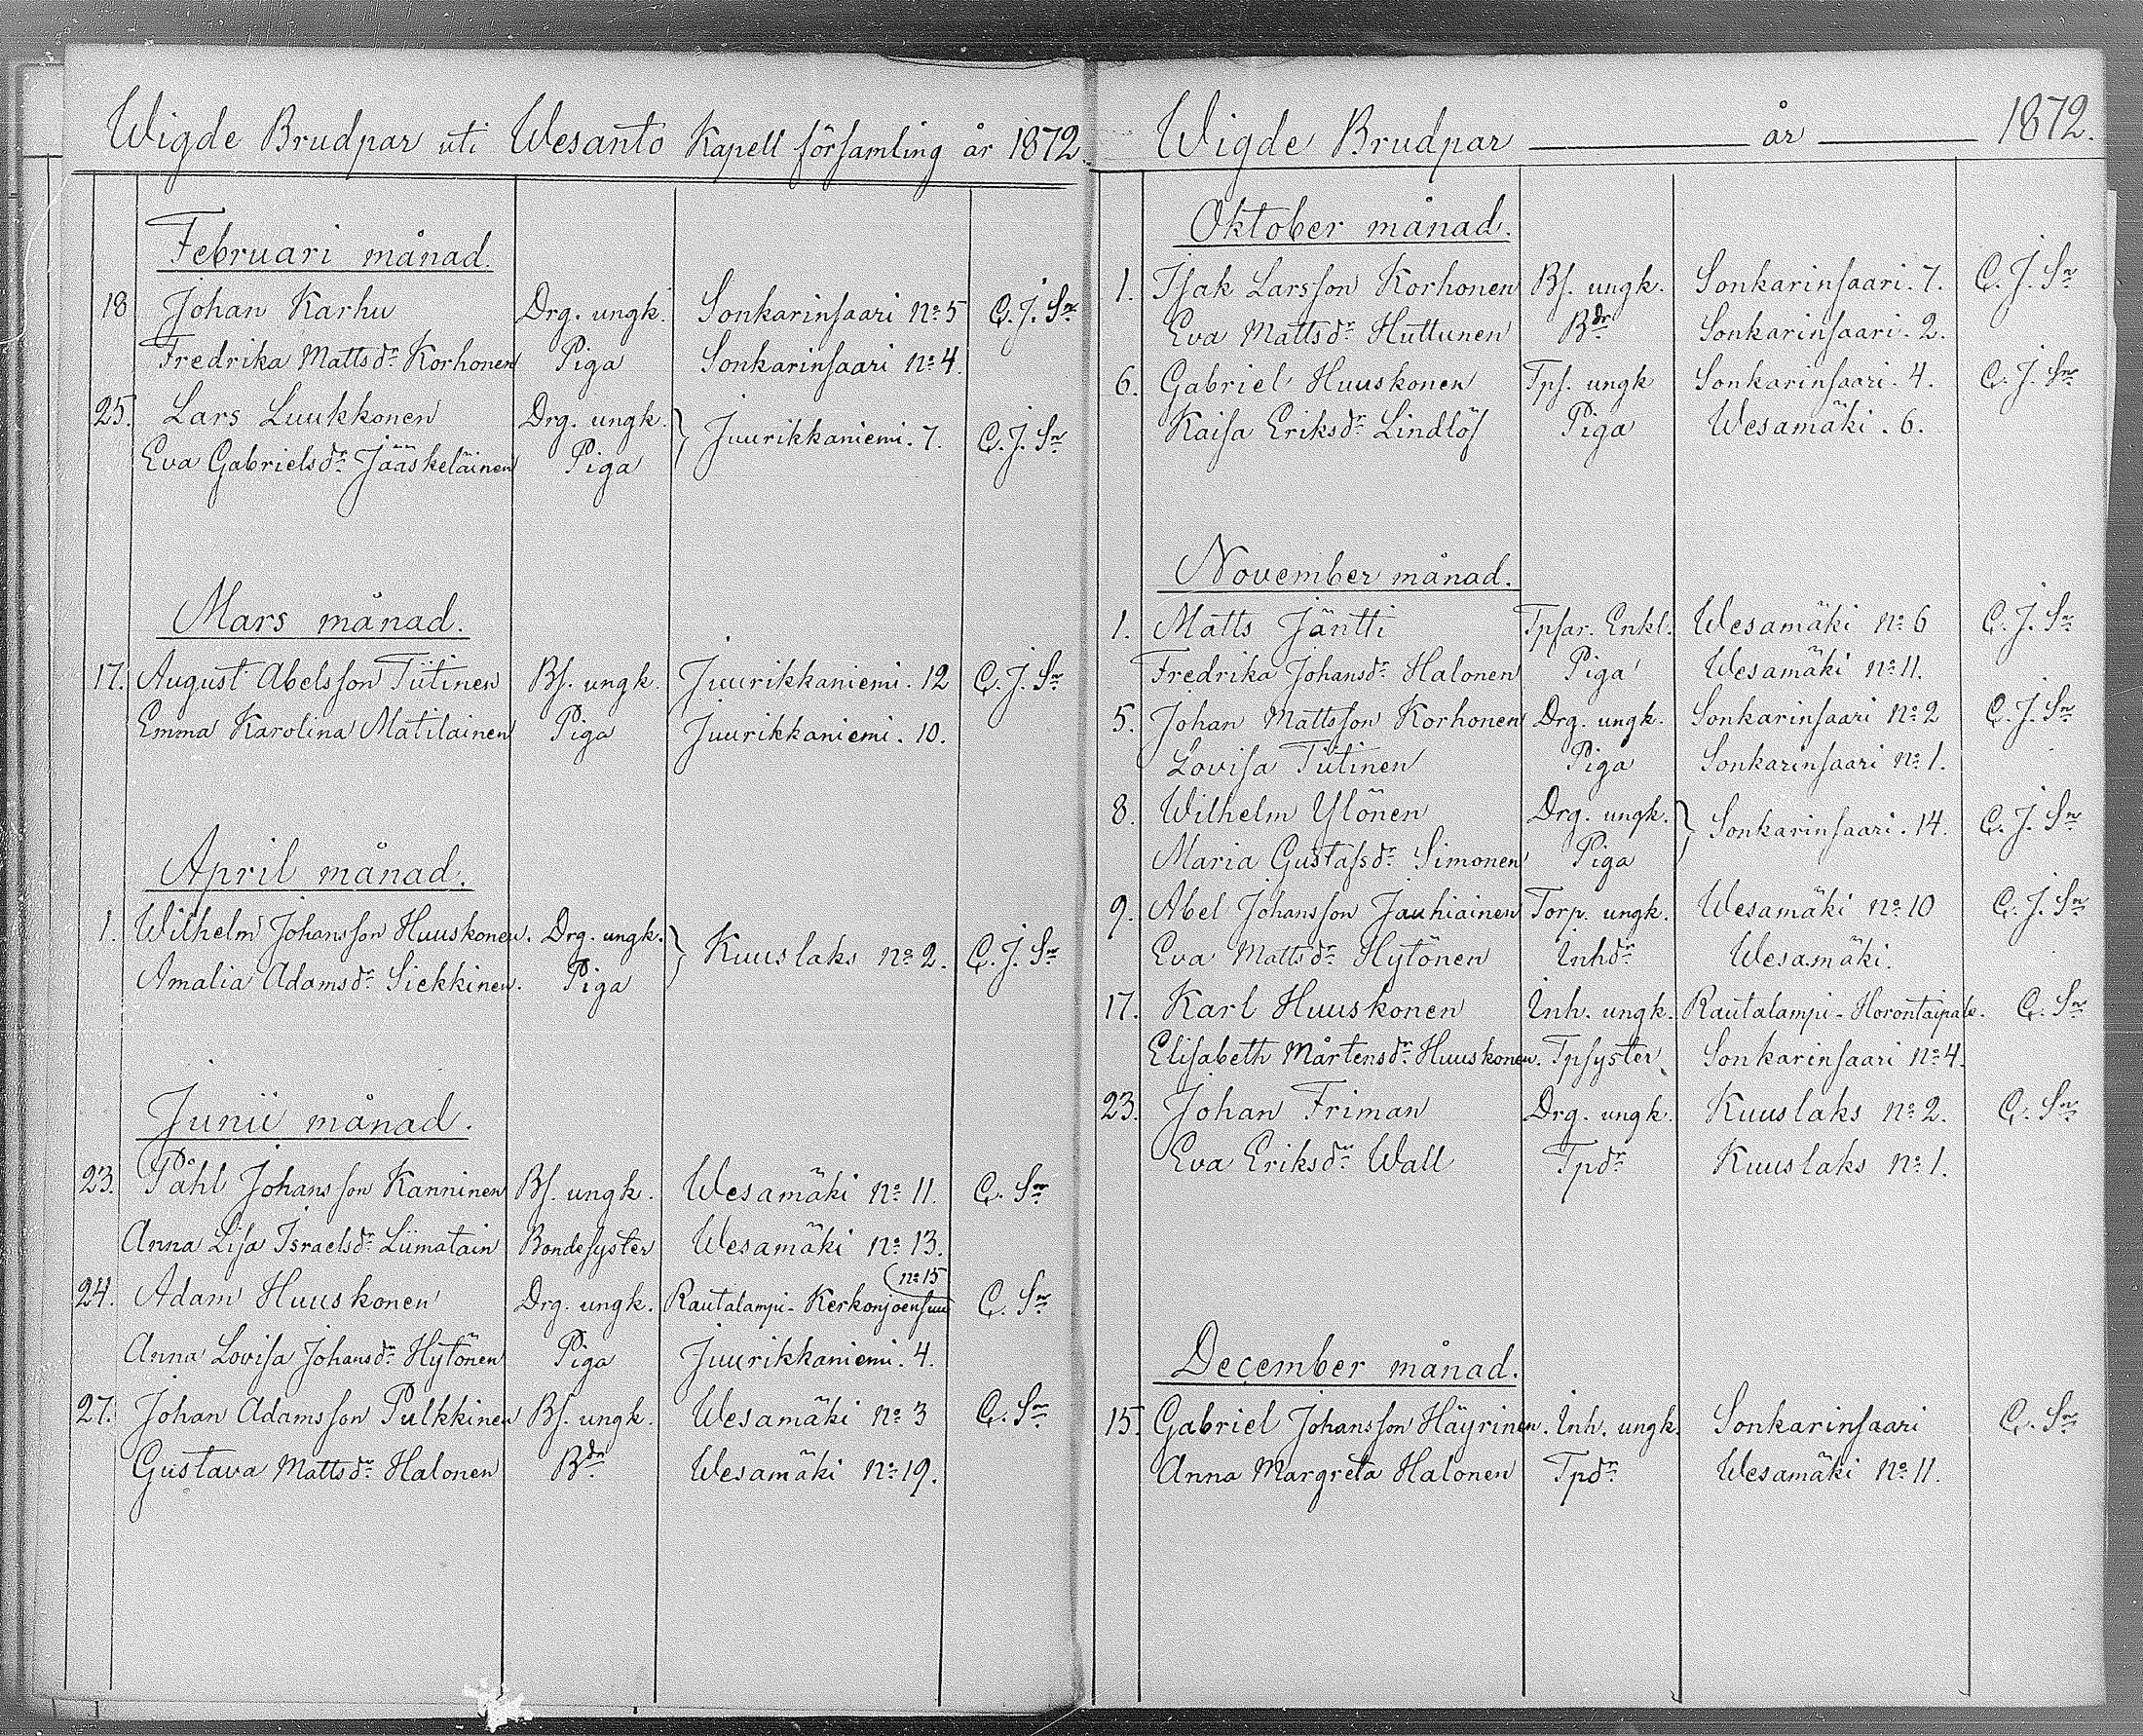 Wigde Brudpar uti Wesanto Kapell församling år 1872.
Februari månad.
18 Johan Karhu Drg. ungk. Sonkarinsaari No 5 C. J. Sr
Fredrika Mattsdr Korhonen Piga Sonkarinsaari No 4.
25. Lars Luukkonen Drg. ungk. } Juurikkaniemi. 7. C. J. Sr
Eva Gabrielsdr Jääskeläinen Piga
Mars månad.
17. August Abelsson Tiitinen Bs. ungk. Juurikkaniemi. 12 C. J. Sr
Emma Karolina Matilainen Piga Juurikkaniemi. 10.
April månad.
1. Wilhelm Johansson Huuskonen. Drg. ungk. } Kuuslaks No 2. C. J. Sr
Amalia Adamsdr Siekkinen. Piga
Junii månad.
23. Påhl Johansson Kanninen Bs. ungk. Wesamäki No 11. C. Sr
Anna Lisa Israelsdr Liimatain Bondesyster Wesamäki No 13.
(No 15
24. Adam Huuskonen Drg. ungk. Rautalampi - Kerkonjoensuu C. Sr
Anna Lovisa Johansdr Hytönen Piga Juurikkaniemi. 4.
27. Johan Adamsson Pulkkinen Bs. ungk. Wesamäki No 3 C. Sr
Gustava Mattsdr Halonen Bdr Wesamäki No 19.
Wigde Brudpar år 1872.
Oktober månad.
1. Isak Larsson Korhonen Bs. ungk. Sonkarinsaari. 7. C. J. Sr
Eva Mattsdr Huttunen Bdr Sonkarinsaari. 2.
6. Gabriel Huuskonen Tps. ungk Sonkarinsaari. 4. C. J. Sr
Kaisa Eriksdr Lindlöf Piga Wesamäki. 6.
November månad.
1. Matts Jäntti Tpsar. Enkl. Wesamäki No 6 C. J. Sr
Fredrika Johansdr Halonen Piga Wesamäki No 11.
5. Johan Mattsson Korhonen Drg. ungk. Sonkarinsaari No 2 C. J. Sr
Lovisa Tiitinen Piga Sonkarinsaari No 1.
8. Wilhelm Ylönen Drg. ungk. } Sonkarinsaari. 14. C. J. Sr
Maria Gustafsdr Simonen Piga
9. Abel Johansson Jauhiainen Torp. ungk. Wesamäki No 10 C. J. Sr
Eva Mattsdr Hytönen Inhdr Wesamäki.
17. Karl Huuskonen Inh. ungk. Rautalampi - Horontaipale. C. Sr
Elisabeth Mårtensdr Huuskonen. Tpsyster Sonkarinsaari No 4.
23. Johan Friman Drg. ungk. Kuuslaks No 2. C. Sr
Eva Eriksdr Wall Tpdr Kuuslaks No 1.
December månad.
15. Gabriel Johansson Häyrinen. Inh. ungk. Sonkarinsaari C. Sr
Anna Margreta Halonen Tpdr Wesamäki No 11.